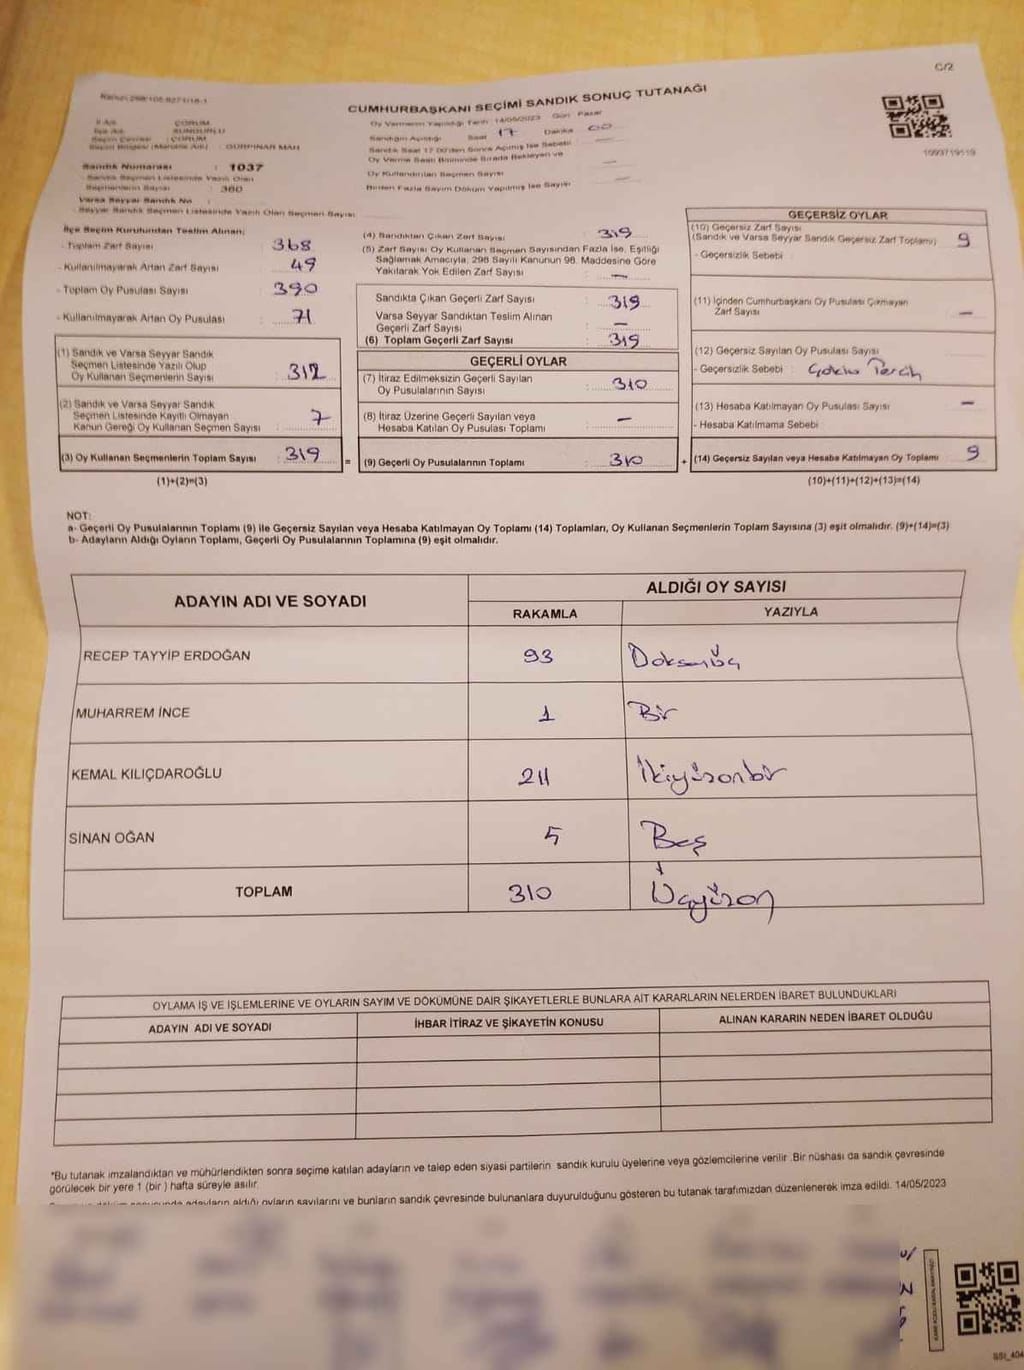 C/2
CUMHURBAŞKANI SEÇİMİ SANDIK SONUÇ TUTANAĞI
Oy Vermenin Yapıldığı Tarih 14/05/2023 Gün Pazar
Sandığın Açıldığı Saat 17 Dakika 00
Sandık Saat 17:00'den Sonra Açılmış İse Sebebi
Oy Verme Saati Bitiminde Sırada Bekleyen ve
Oy Kullandırılan Seçmen Sayısı
Birden Fazla Sayım Döküm Yapılmış İse Sayısı
İl Adı ÇORUM
İlçe Adı SUNGURLU
Seçim Çevresi : ÇORUM
GÜRPINAR MAH
Sandık Numarası : 1037
Sandık Seçmen Listesinde Yazılı Olan
Seçmenlerin Sayısı : 380
Varsa Seyyar Sandık No
Seyyar Sandık Seçmen Listesinde Yazılı Olan Seçmen Sayısı
İlçe Seçim Kurulundan Teslim Alınan;
- Toplam Zarf Sayısı : 368
- Kullanılmayarak Artan Zarf Sayısı : 49
- Toplam Oy Pusulası Sayısı : 390
- Kullanılmayarak Artan Oy Pusulası : 71
(1) Sandık ve Varsa Seyyar Sandık
Seçmen Listesinde Yazılı Olup
Oy Kullanan Seçmenlerin Sayısı : 312
(2) Sandık ve Varsa Seyyar Sandık
Seçmen Listesinde Kayıtlı Olmayan
Kanun Gereği Oy Kullanan Seçmen Sayısı : 7
(3) Oy Kullanan Seçmenlerin Toplam Sayısı : 319
(1)+(2)=(3)
(4) Sandıktan Çıkan Zarf Sayısı : 319
(5) Zarf Sayısı Oy Kullanan Seçmen Sayısından Fazla İse, Eşitliği
Sağlamak Amacıyla, 298 Sayılı Kanunun 98. Maddesine Göre
Yakılarak Yok Edilen Zarf Sayısı : —
Sandıkta Çıkan Geçerli Zarf Sayısı : 319
Varsa Seyyar Sandıktan Teslim Alınan
Geçerli Zarf Sayısı : —
(6) Toplam Geçerli Zarf Sayısı : 319
GEÇERLİ OYLAR
(7) İtiraz Edilmeksizin Geçerli Sayılan
Oy Pusulalarının Sayısı : 310
(8) İtiraz Üzerine Geçerli Sayılan veya
Hesaba Katılan Oy Pusulası Toplamı : —
= (9) Geçerli Oy Pusulalarının Toplamı : 310
1093719519
GEÇERSİZ OYLAR
(10) Geçersiz Zarf Sayısı
(Sandık ve Varsa Seyyar Sandık Geçersiz Zarf Toplamı) : 9
- Geçersizlik Sebebi :
(11) İçinden Cumhurbaşkanı Oy Pusulası Çıkmayan
Zarf Sayısı : —
(12) Geçersiz Sayılan Oy Pusulası Sayısı
- Geçersizlik Sebebi : Tercih
(13) Hesaba Katılmayan Oy Pusulası Sayısı : —
- Hesaba Katılmama Sebebi
+ (14) Geçersiz Sayılan veya Hesaba Katılmayan Oy Toplamı : 9
(10)+(11)+(12)+(13)=(14)
NOT:
a- Geçerli Oy Pusulalarının Toplamı (9) ile Geçersiz Sayılan veya Hesaba Katılmayan Oy Toplamı (14) Toplamları, Oy Kullanan Seçmenlerin Toplam Sayısına (3) eşit olmalıdır. (9)+(14)=(3)
b- Adayların Aldığı Oyların Toplamı, Geçerli Oy Pusulalarının Toplamına (9) eşit olmalıdır.
ADAYIN ADI VE SOYADI
ALDIĞI OY SAYISI
RAKAMLA YAZIYLA
RECEP TAYYİP ERDOĞAN 93 Doksanüç
MUHARREM İNCE 1 Bir
KEMAL KILIÇDAROĞLU 211 İkiyüzonbir
SİNAN OĞAN 5 Beş
TOPLAM 310 Üçyüzon
OYLAMA İŞ VE İŞLEMLERİNE VE OYLARIN SAYIM VE DÖKÜMÜNE DAİR ŞİKAYETLERLE BUNLARA AİT KARARLARIN NELERDEN İBARET BULUNDUKLARI
ADAYIN ADI VE SOYADI İHBAR İTİRAZ VE ŞİKAYETİN KONUSU ALINAN KARARIN NEDEN İBARET OLDUĞU
*Bu tutanak imzalandıktan ve mühürlendikten sonra seçime katılan adayların ve talep eden siyasi partilerin sandık kurulu üyelerine veya gözlemcilerine verilir .Bir nüshası da sandık çevresinde
görülecek bir yere 1 (bir ) hafta süreyle asılır.
adayların aldığı oyların sayılarını ve bunların sandık çevresinde bulunanlara duyurulduğunu gösteren bu tutanak tarafımızdan düzenlenerek imza edildi. 14/05/2023
SSI_404